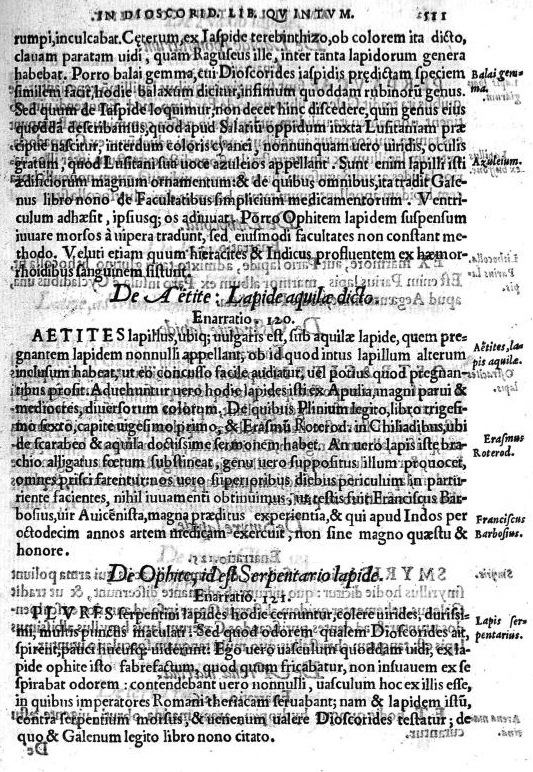 IN DIOSCORID. LIB. QVINTVM. 511
rumpi, inculcabat. Ceterum, ex Iaspide terebinthizo, ob colorem ita dicto,
clauam paratam uidi, quam Raguseus ille, inter tanta lapidorum genera
habebat. Porro balai gemma, cui Dioscorides iaspidis prędictam speciem
Balai gem-
ma.
similem facit, hodie balaxum dicitur, infimum quoddam rubinorũ genus.
Sed quum de Iaspide loquimur, non decet hinc discedere, quin genus eius
quoddã describamus, quod apud Salatiũ oppidum iuxta Lusitaniam præ
cipue nascitur, interdum coloris cyanei, nonnunquam uero uiridis, oculis
gratum, quod Lusitani sua uoce azuleios appellant. Sunt enim lapilli isti
Azuleium.
ædificiorum magnum ornamentum: & de quibus omnibus, ita tradit Gale-
nus libro nono de Facultatibus simplicium medicamentorum. Ventri-
culum adhæsit, ipsiusq; os adiuuat. Porro Ophitem lapidem suspensum
iuuare morsos à uipera tradunt, sed eiusmodi facultates non constant me-
thodo. Veluti etiam quum hieracites & Indicus profluentem ex hæmor-
rhoidibus sanguinem sistunt.
De Aëtite: Lapide aquilæ dicto.
Enarratio, 120.
AETITES lapillus, ubiq; uulgaris est, sub aquilæ lapide, quem præ-
gnantem lapidem nonnulli appellant, ob id quod intus lapillum alterum
Aëtites, la-
pis aquilæ.
inclusum habeat, ut eo concusso facile audiatur, uel potius quod prægnan-
tibus prosit. Aduehuntur uero hodie lapides isti ex Apulia, magni parui &
mediocres, diuersorum colorum. De quibus Plinium legito, libro trigesi-
mo sexto, capite uigesimo primo, & Erasmũ Roterod. in Chiliadibus, ubi
de scarabeo & aquila doctissime sermonem habet. An uero lapis iste bra-
Erasmus
Roterod.
chio alligatus fœtum substineat, genu uero suppositus illum prouocet,
omnes prisci fatentur: nos uero superioribus diebus periculum in partu-
riente facientes, nihil iuuamenti obtinuimus, ut testis fuit Franciscus Bar-
bosius, uir Auicēnista, magna præditus experientia, & qui apud Indos per
Franciscus
Barbosius.
octodecim annos artem medicam exercuit, non sine magno quæstu &
honore.
De Ophite, id est Serpentario lapide.
Enarratio. 121.
PLVRES serpentini lapides hodie cernuntur, colore uirides, durissi-
mi, multis punctis maculati: Sed quod odorem qualem Dioscorides ait,
Lapis ser-
pentarius.
spirent, pauci hucusq; uiderunt: Ego uero uasculum quoddam uidi, ex la-
pide ophite isto fabrefactum, quod quum fricabatur, non insuauem ex se
spirabat odorem: contendebant uero nonnulli, uasculum hoc ex illis esse,
in quibus imperatores Romani theriacam seruabant; nam & lapidem istũ,
contra serpentium morsus, & uenenum ualere Dioscorides testatur; de
quo & Galenum legito libro nono citato.
De